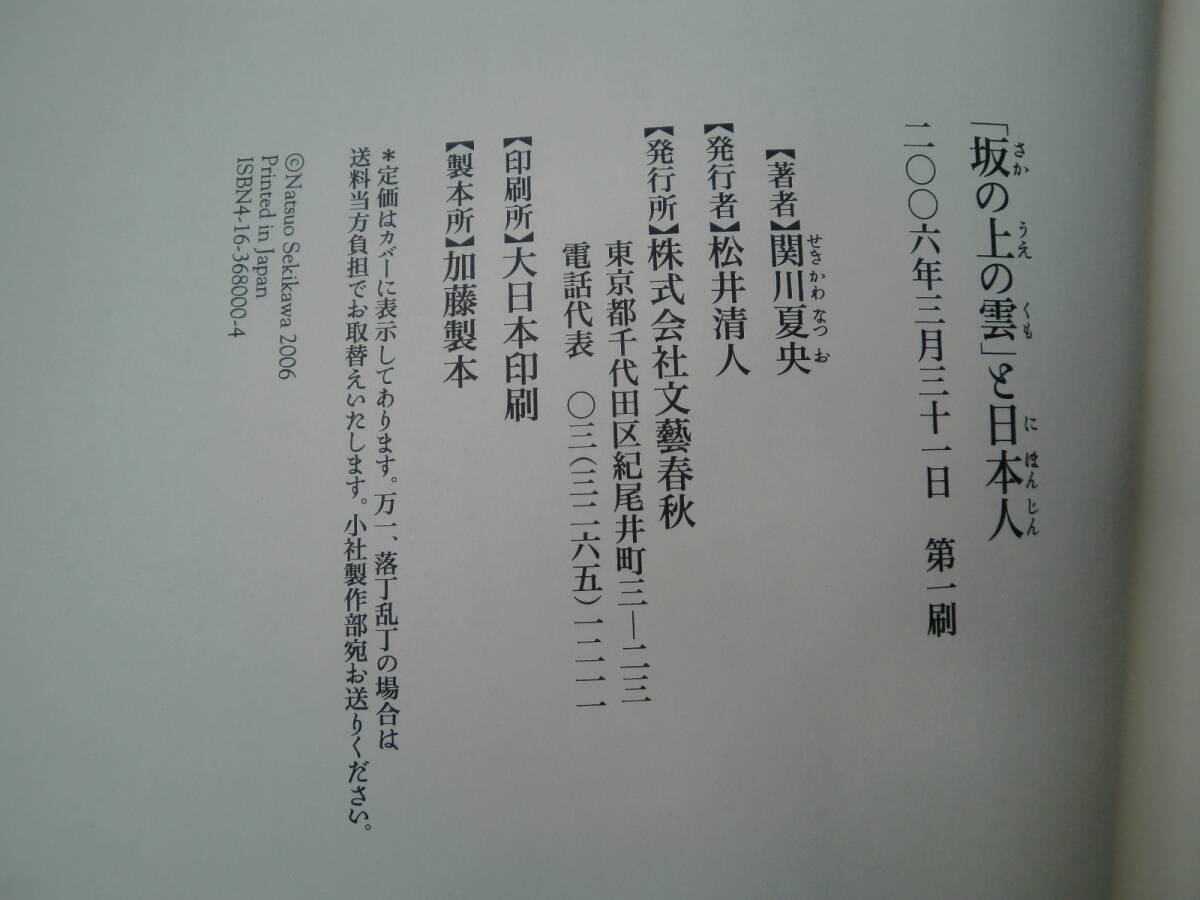 「坂の上の雲」と日本人
さか うえ くも にほんじん
二〇〇六年三月三十一日 第一刷
【著者】関川夏央
せきかわなつお
【発行者】松井清人
【発行所】株式会社文藝春秋
東京都千代田区紀尾井町三―二三
電話代表 〇三(三二六五)一二一一
【印刷所】大日本印刷
【製本所】加藤製本
＊定価はカバーに表示してあります。万一、落丁乱丁の場合は
送料当方負担でお取替えいたします。小社製作部宛お送りください。
©Natsuo Sekikawa 2006
Printed in Japan
ISBN4-16-368000-4